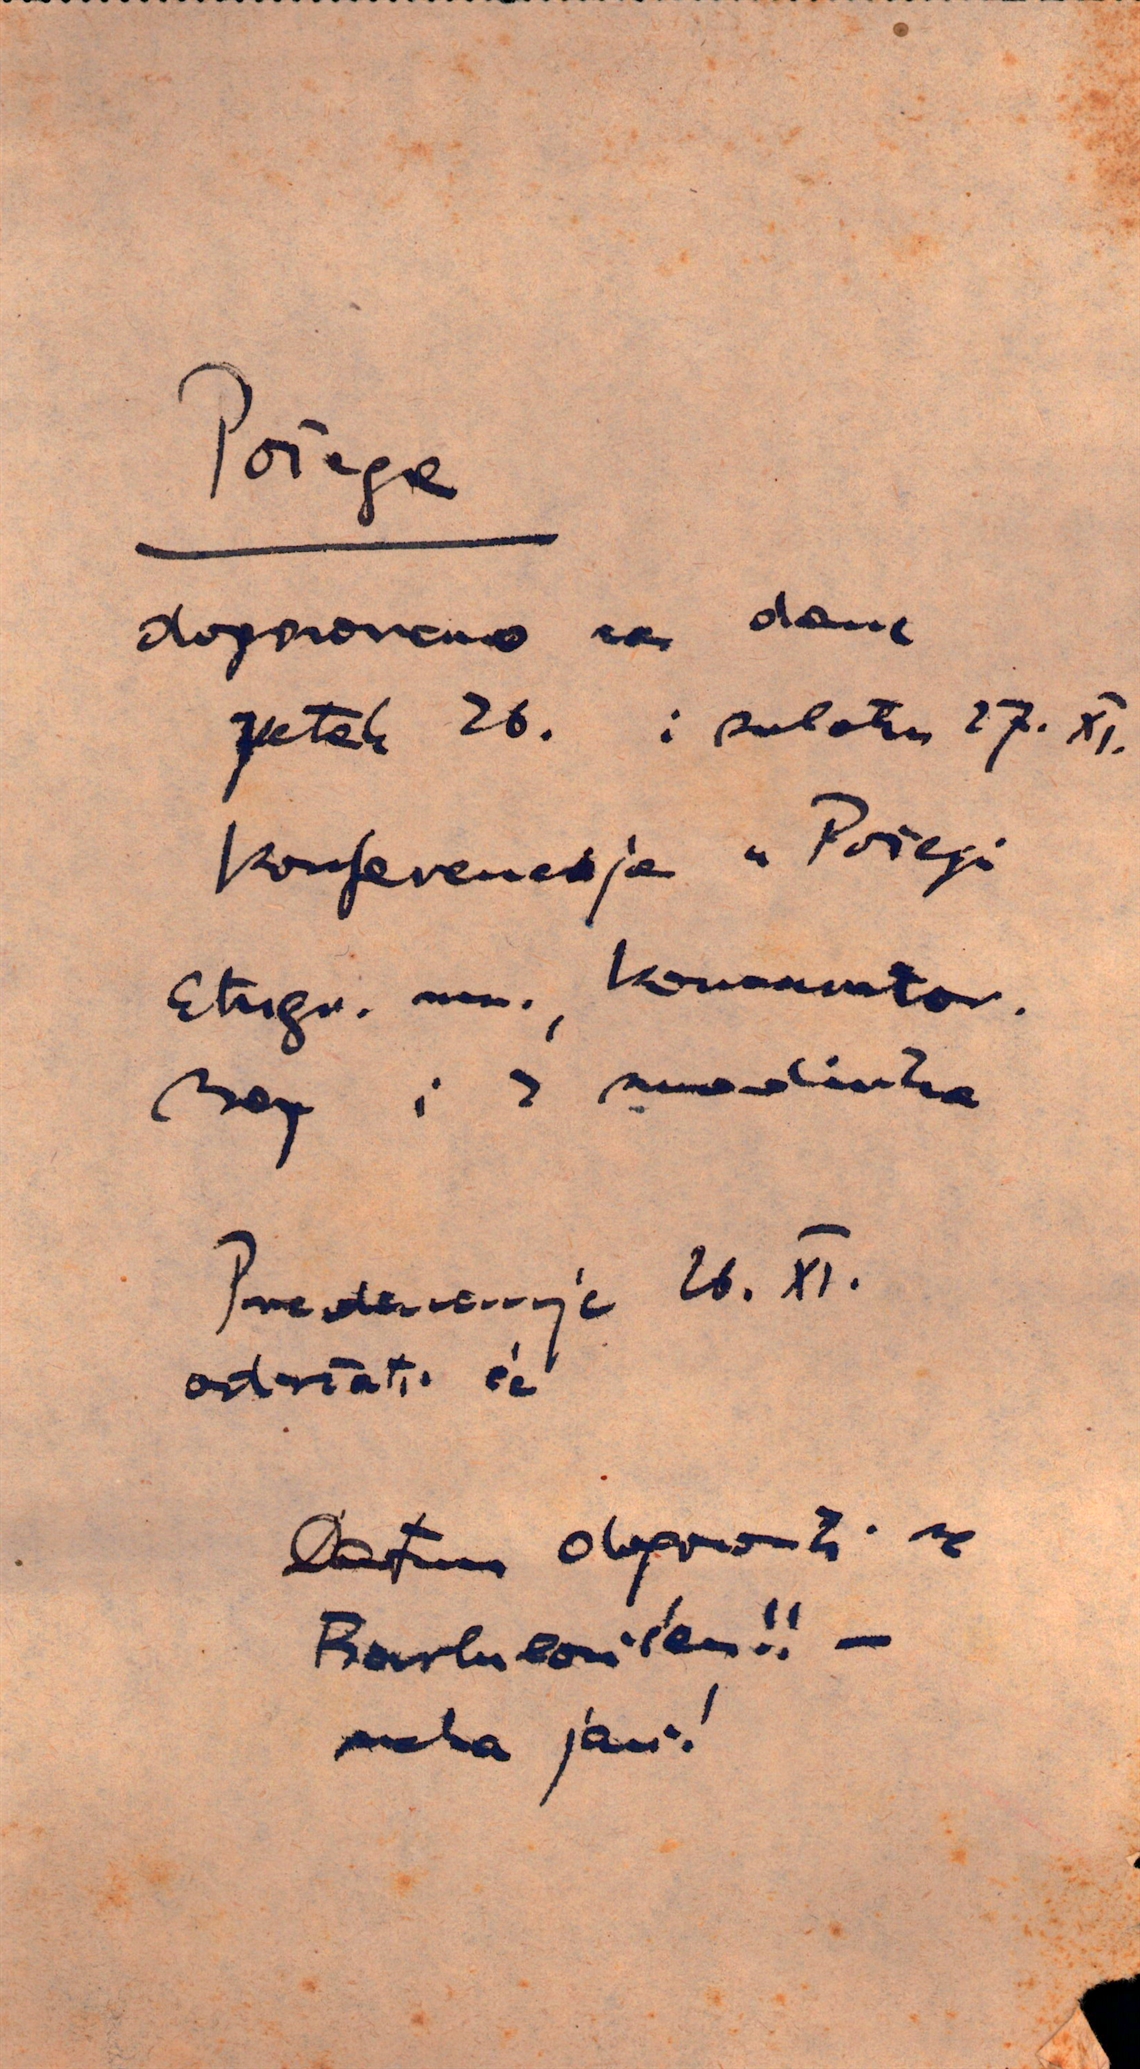 Požega
dogovoreno za dane
petak 26. i subotu 27. XI.
Konferencija u Požegi
Etnogr. muz., Konzervator.
zav i
Predavanje 26. XI.
održati će
Datum dogovoriti sa
!! —
neka javi!